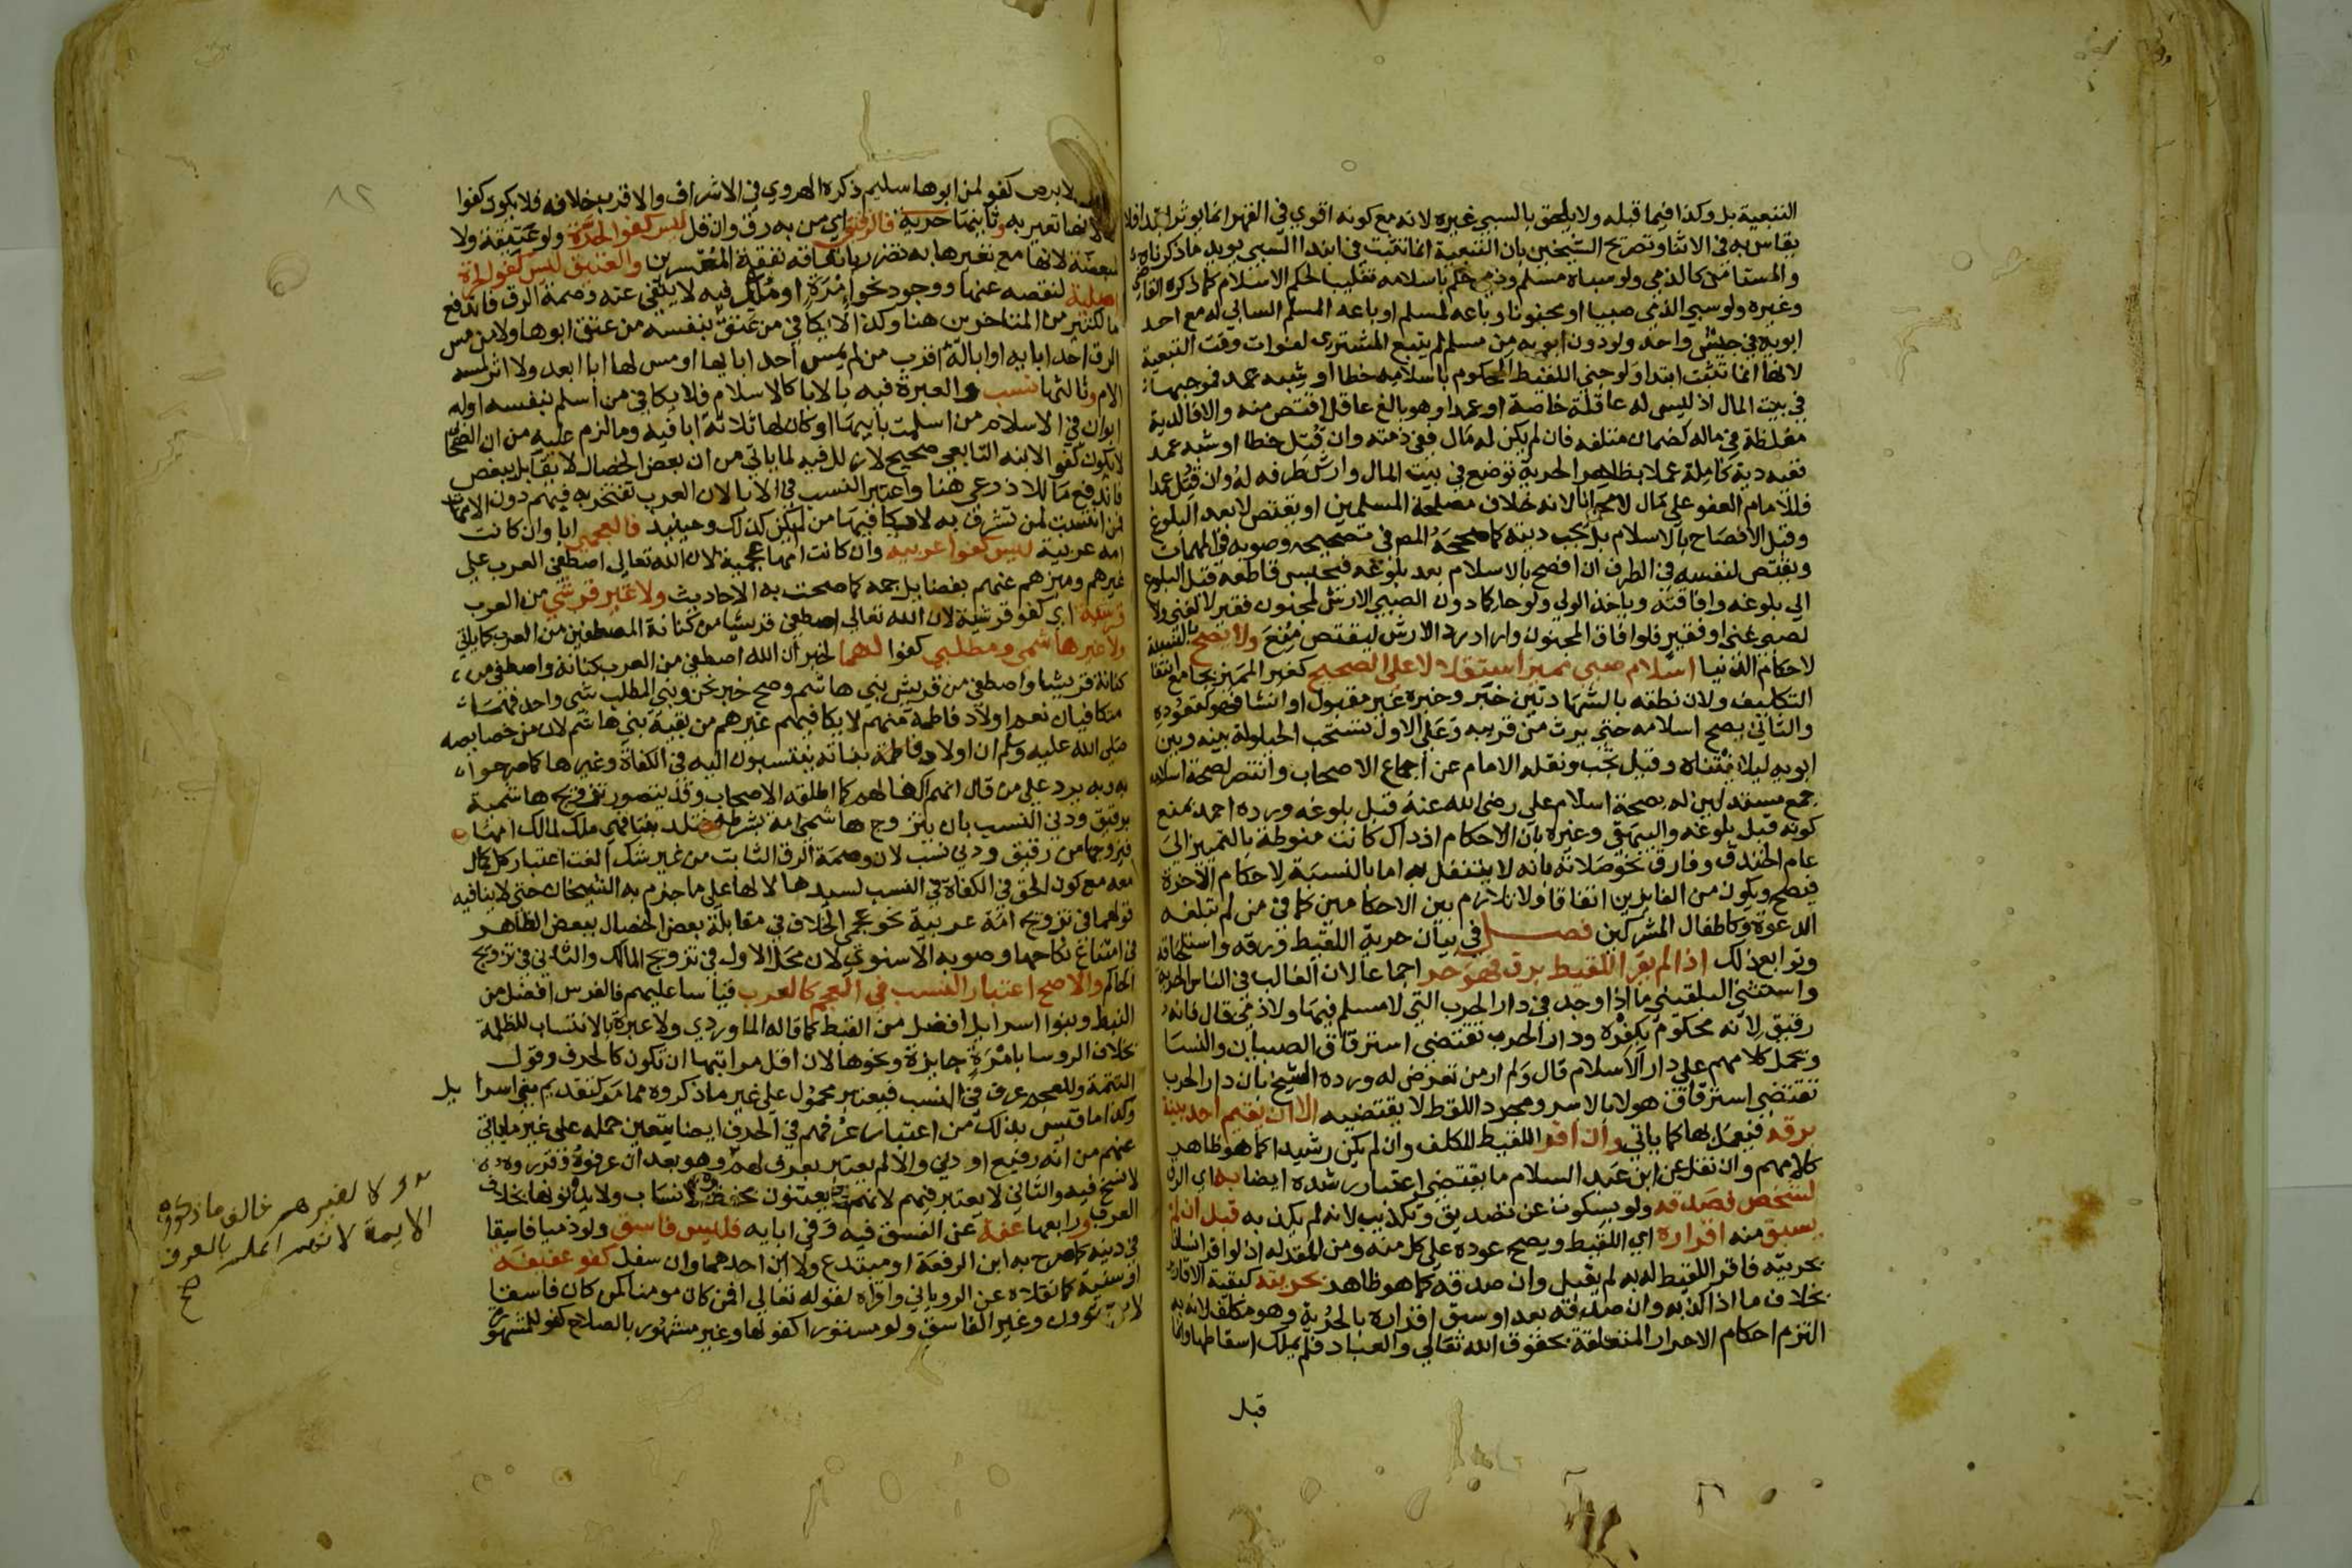 التبعية بل وكذا فيما قبله ولا يلحق بالسبي غيره لانه مع كونه اقوي في القهر انما يوثر ابتدا فلا
يقاس به في الاثنا وتصريح الشيخين بان التبعية انما تثبت في ابتدا السبي يويد ما ذكرناه
والمستامن كالذمي ولو سباه مسلم وذمي حكم باسلامه تغليبا لحكم الاسلام كما ذكره القاضي
وغيره ولو سبي الذمي صبيا او مجنونا وباعه لمسلم او باعه المسلم السابي له مع احد
ابويه في جيش واحد ولو دون ابويه من مسلم لم يتبع المشتري لفوات وقت التبعية
لانها انما تثبت ابتدا ولو جني اللقيط المحكوم باسلامه خطا او شبه عمد فموجبها
في بيت المال اذ ليس له عاقلة خاصة او عمدا وهو بالغ عاقل اقتص منه والا فالدية
مغلظة في ماله كضمان متلفه فان لم يكن له مال ففي ذمته وان قتل خطا او شبه عمد
ففيه دية كاملة عملا بظاهر الحرية توضع في بيت المال وارش طرفه له وان قتل عمدا
فللامام العفو علي مال لا مجانا لانه خلاف مصلحة المسلمين او يقتص لا بعد البلوغ
وقبل الافصاح بالاسلام بل تجب ديته كما صححه المص في تصحيحه وصوبه في المهمات
ويقتص لنفسه في الطرف ان افصح بالاسلام بعد بلوغه فيحبس قاطعه قبل البلوغ
الي بلوغه وافاقته وياخذ الولي ولو حاكما دون الصبي الارش لمجنون فقير لا لغني ولا
لصبي غني او فقير فلو افاق المجنون واراد رد الارش ليقتص منع ولا يصح بالنسبة
لاحكام الدنيا اسلام صبي مميز استقلالا على الصحيح كغير المميز بجامع انتفا
التكليف ولان نطقه بالشهادتين خبر وخبره غير مقبول او انشا فهو كعقوده
والثاني يصح اسلامه حتي يرث من قريبه وعلي الاول تستحب الحيلولة بينه وبين
ابويه ليلا يفتناه وقيل تجب ونقله الامام عن اجماع الاصحاب وانتصر لصحة اسلامه
جمع مستدلين له بصحة اسلام علي رضي الله عنه قبل بلوغه ورده احمد بمنع
كونه قبل بلوغه والبيهقي وغيره بان الاحكام اذ ذاك كانت منوطة بالتمييز الي
عام الخندق وفارق نحو صلاته بانه لا يتنفل به اما بالنسبة لاحكام الاخرة
فيصح ويكون من الفايزين اتفاقا ولا تلازم بين الاحكامين كما في من لم تبلغه
الدعوة وكاطفال المشركين فصل في بيان حرية اللقيط ورقه واستلحاقه
وتوابع ذلك اذا لم يقر اللقيط برق فهو حر اجماعا لان الغالب في الناس الحرية
واستثني البلقيني ما اذا وجد في دار الحرب التي لا مسلم فيها ولا ذمي قال فانه
رقيق لانه محكوم بكفره ودار الحرب تقتضي استرقاق الصبيان والنسا
وتحمل كلامهم علي دار الاسلام قال ولم ار من تعرض له ورده الشيخ بان دار الحرب
تقتضي استرقاق هولا بالاسر ومجرد اللقط لا يقتضيه الا ان يقيم احد بينة
برقه فيعمل بها كما ياتي وان اقر اللقيط المكلف وان لم يكن رشيدا كما هو ظاهر
كلامهم وان نقل عن ابن عبد السلام ما يقتضي اعتبار رشده ايضا به اي الرق
لشخص فصدقه ولو بسكوت عن تصديق وتكذيب لانه لم يكذبه قبل ان لم
يسبق منه اقراره اي اللقيط ويصح عوده علي كل منه ومن المقر له اذ لو اقر انسان
بحريته فاقر اللقيط له به لم يقبل وان صدقه كما هو ظاهر بحريته كبقية الاقارير
بخلاف ما اذا كذبه وان صدقه بعد او سبق اقراره بالحرية وهو مكلف لانه به
التزم احكام الاحرار المتعلقة بحقوق الله تعالي والعباد فلم يملك اسقاطها وانما
قبل
لابرص كفو لمن ابوها سليم ذكره الهروي في الاشراف والاقرب خلافه فلا يكون كفوا
لانها تعير به وثانيها حرية فالرقيق اي من به رق وان قل ليس كفوا لحرة ولو عتيقة ولا
لمبعضة لانها مع تعيرها به تضرر بانفاقه نفقة المعسرين والعتيق ليس كفو لحرة
اصلية لنقصه عنها ووجود نحو امرة او ملك فيه لا ينفي عنه وصمة الرق فاندفع
ما لكثير من المتاخرين هنا وكذا لا يكافي من عتق بنفسه من عتق ابوها ولا من مس
الرق احد ابايه او ابا له اقرب من لم يمس احد ابايها او مس لها ابا ابعد ولا اثر لمسه
الام وثالثها نسب والعبرة فيه بالابا كالاسلام فلا يكافي من اسلم بنفسه او له
ابوان في الاسلام من اسلمت بابيها او كان لها ثلاثة ابا فيه وما لزم عليه من ان الصحابي
لا يكون كفو الابنه التابعي صحيح لا زلل فيه لما ياتي من ان بعض الخصال لا يقابل ببعض
فاندفع ما للاذرعي هنا واعتبر النسب في الابا لان العرب تفتخر به فيهم دون الامهات
فمن انتسبت لمن تشرف به لا يكافيها من لم يكن كذلك وحينيذ فالعجمي ابا وان كانت
امه عربية ليس كفوا عربيه وان كانت امها عجمية لان الله تعالي اصطفي العرب علي
غيرهم وميزهم عنهم بفضايل جمه كما صحت به الاحاديث ولا غير قرشي من العرب
قرشية اي كفو قرشية لان الله تعالي اصطفي قريشا من كنانة المصطفين من العرب كما ياتي
ولا غير هاشمي ومطلبي كفوا لهما لخبر ان الله اصطفي من العرب كنانة واصطفي من
كنانة قريشا واصطفي من قريش بني هاشم وصح خبر نحن وبني المطلب شي واحد فهما
متكافيان نعم اولاد فاطمة منهم لا يكافيهم غيرهم من بقية بني هاشم لان من خصايصه
صلي الله عليه وسلم ان اولاد فاطمة بناته ينتسبون اليه في الكفاة وغيرها كما صرحوا
به وبه يرد علي من قال انهم اكفا لهم كما اطلقه الاصحاب وقد يتصور تزويج هاشمية
برقيق ودني النسب بان يتزوج هاشمي امة بشرطه فتلد بنتا فهي ملك لمالك امها
فيزوجها من رقيق ودني نسب لان وصمة الرق الثابت من غير شك الغت اعتبار كل كمال
معه مع كون الحق في الكفاة في النسب لسيدها لا لها علي ما جزم به الشيخان حتي لا ينافيه
قولهما في تزويج امة عربية نحو عجمي الخلاف في مقابلة بعض الخصال ببعض الظاهر
في امتناع نكاحها وصوبه الاسنوي لان محل الاول في تزويج المالك والثاني في تزويج
الحاكم والاصح اعتبار النسب في العجم كالعرب قياسا عليهم فالفرس افضل من
النبط وبنوا اسرايل افضل من القبط كما قاله الماوردي ولا عبرة بالانتساب للظلمة
بخلاف الروسا بامرة جايزة ونحوها لان اقل مراتبها ان تكون كالحرف وقول
التتمة وللعجم عرف في النسب فيعتبر محمول علي غير ما ذكروه مما مر كتقديم بني اسرا يل
وكذا ما قيس بذلك من اعتبار عرفهم في الحرف ايضا يتعين حمله علي غير ما ياتي
عنهم من انه رفيع او دني والا لم يعتبر بعرف لهم وهو بعد ان عرفوه وقرروه
لا نسخ فيه والثاني لا يعتبر فيهم لانهم لا يعتنون بحفظ الانساب ولا يدونونها بخلاف
العرب ورابعها عفة عن الفسق فيه وفي ابايه فليس فاسق ولو ذميا فاسقا
في دينه كما صرح به ابن الرفعة او مبتدع ولا ابن احدهما وان سفل كفو عفيفة
او سنية كما نقلاه عن الروياني واقراه لقوله تعالي افمن كان مومنا كمن كان فاسقا
لا يستوون وغير الفاسق ولو مستورا كفو لها وغير مشهور بالصلاح كفو للمشهورة
لا لغيرهم خالف ما ذكروه
الايمة لانهم اعلم بالعرف
صح